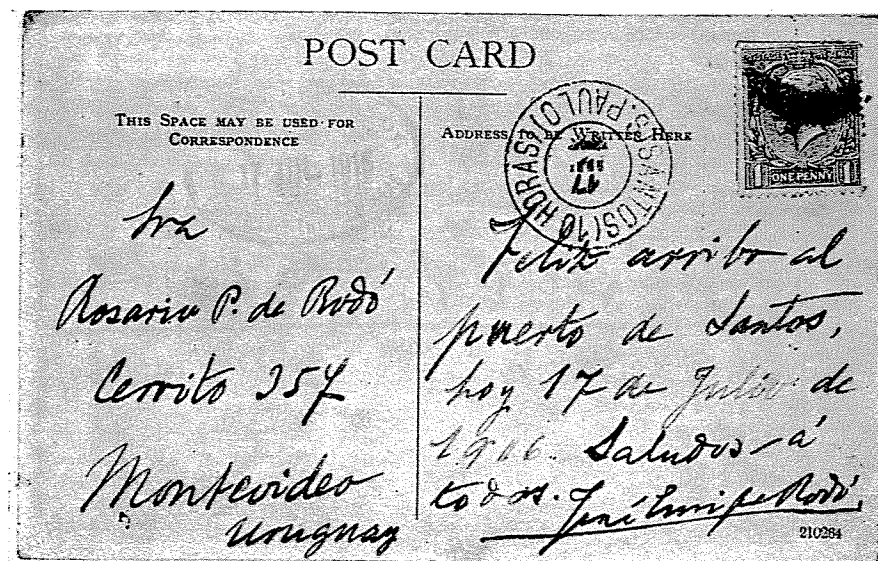 POST CARD
THIS SPACE MAY BE USED FOR
CORRESPONDENCE
ADDRESS to be WRITTEN HERE
SANTOS (10 HORAS) (S. PAULO)
17
1
ONE PENNY
1
Sra
Rosario P. de Rodó
Cerrito 357
Montevideo
Uruguay
Feliz arribo al
puerto de Santos,
hoy 17 de Julio de
1916. Saludos á
todos. José Enrique Rodó.
210264